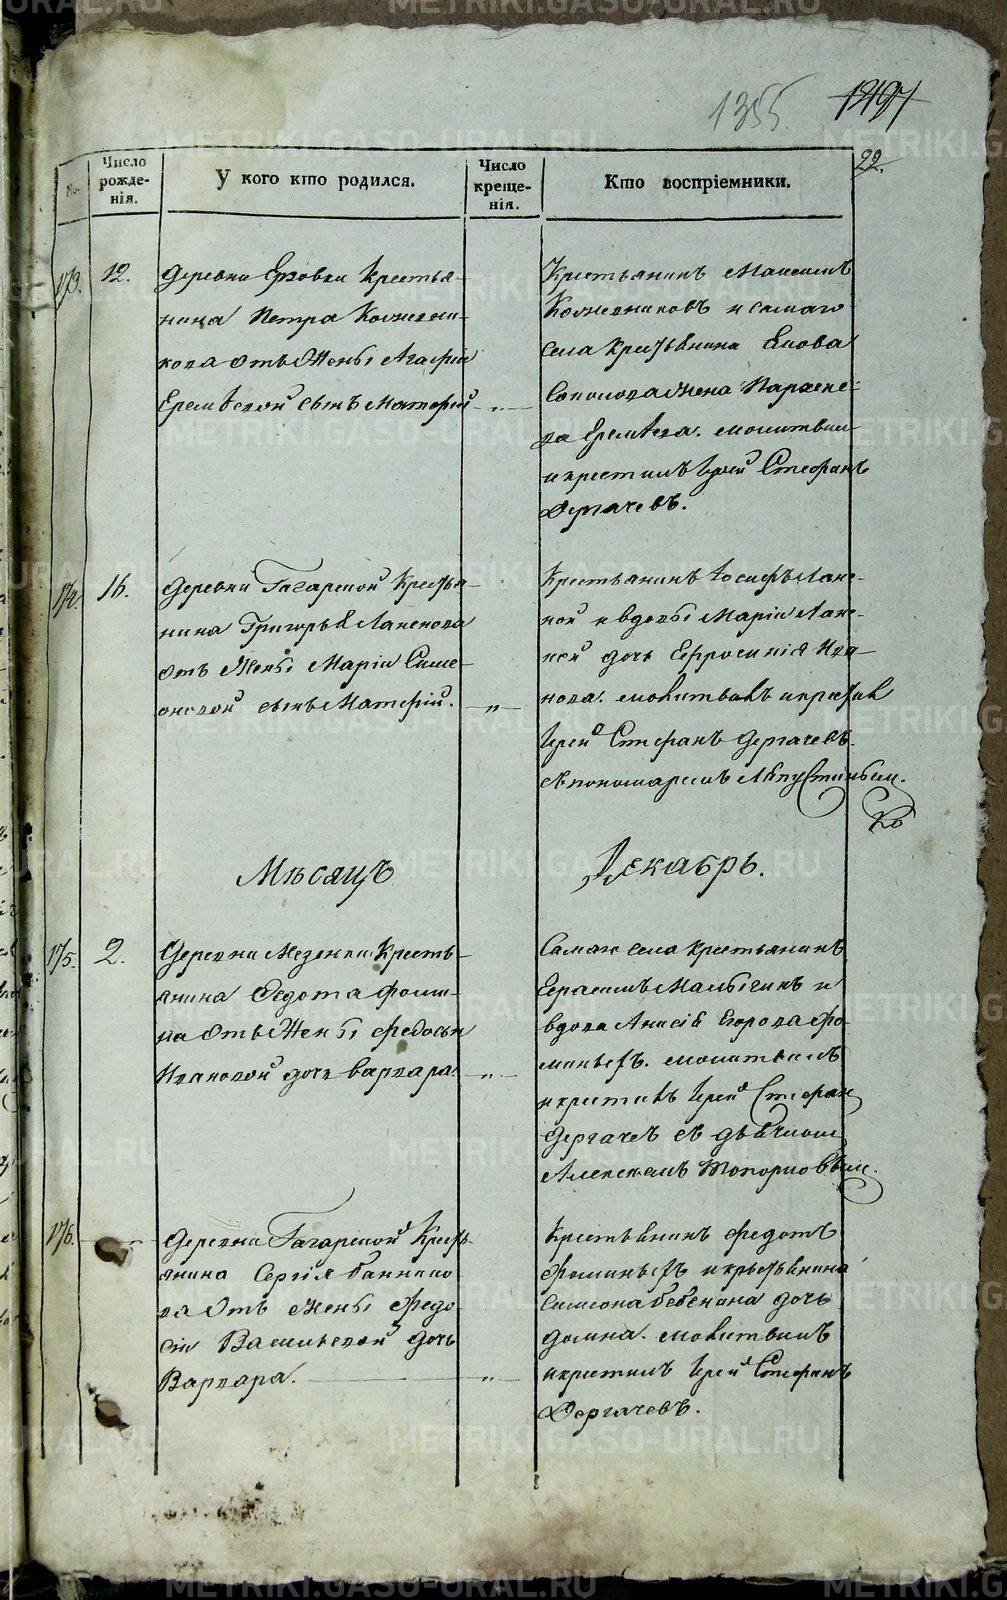 1355. 1219
22.
№
Число рожде-нія.
У кого кто родился.
Число креще-нія.
Кто воспріемники.
173. 12.
Деревни Ерзовки крестья-
нина Петра Кожевни-
кова отъ Жены Агафіи
Еремѣевой сынъ Матѳрій „
Крестьянинъ Максимъ
Кожевниковъ и самаго
села крестьянина
жена Параске-
ва Еремѣева. молитвил
и крестилъ Іерей Стефанъ
Дергачевъ.
174. 16.
Деревни Гагарской Крестья-
нина Григорья
отъ Жены Маріи Симе-
оновой сынъ Матѳрій. „
Крестьянинъ Іосифъ
и вдовы Маріи
дочь Ефросинія Ива-
нова. молитвилъ и крестил
Іерей Стефанъ Дергачевъ
съ пономаремъ
Мѣсяцъ Декабрь.
175. 2.
Деревни Мезенки Кресть-
янина Федота Фоми-
на отъ Жены Федосьи
Ивановой дочь Варвара. „
Самаго села крестьянинъ
Герасимъ Малыгинъ и
вдова Анисія Егорова Фо-
миныхъ. молитвилъ
и крестилъ Іерей Стефан
Дергачевъ съ дьячкомъ
Алексѣемъ Топорковым.
176.
Деревни Гагарской Кресть-
янина Сергія Баннико-
ва отъ жены Федо-
сьи Васильевой дочь
Варвара. „
Крестьянинъ Федотъ
Фоминыхъ и крестьянина
Симеона Бабенина дочь
Домна. молитвилъ
и крестилъ Іерей Стефанъ
Дергачевъ.
METRIKI.GASO-URAL.RU